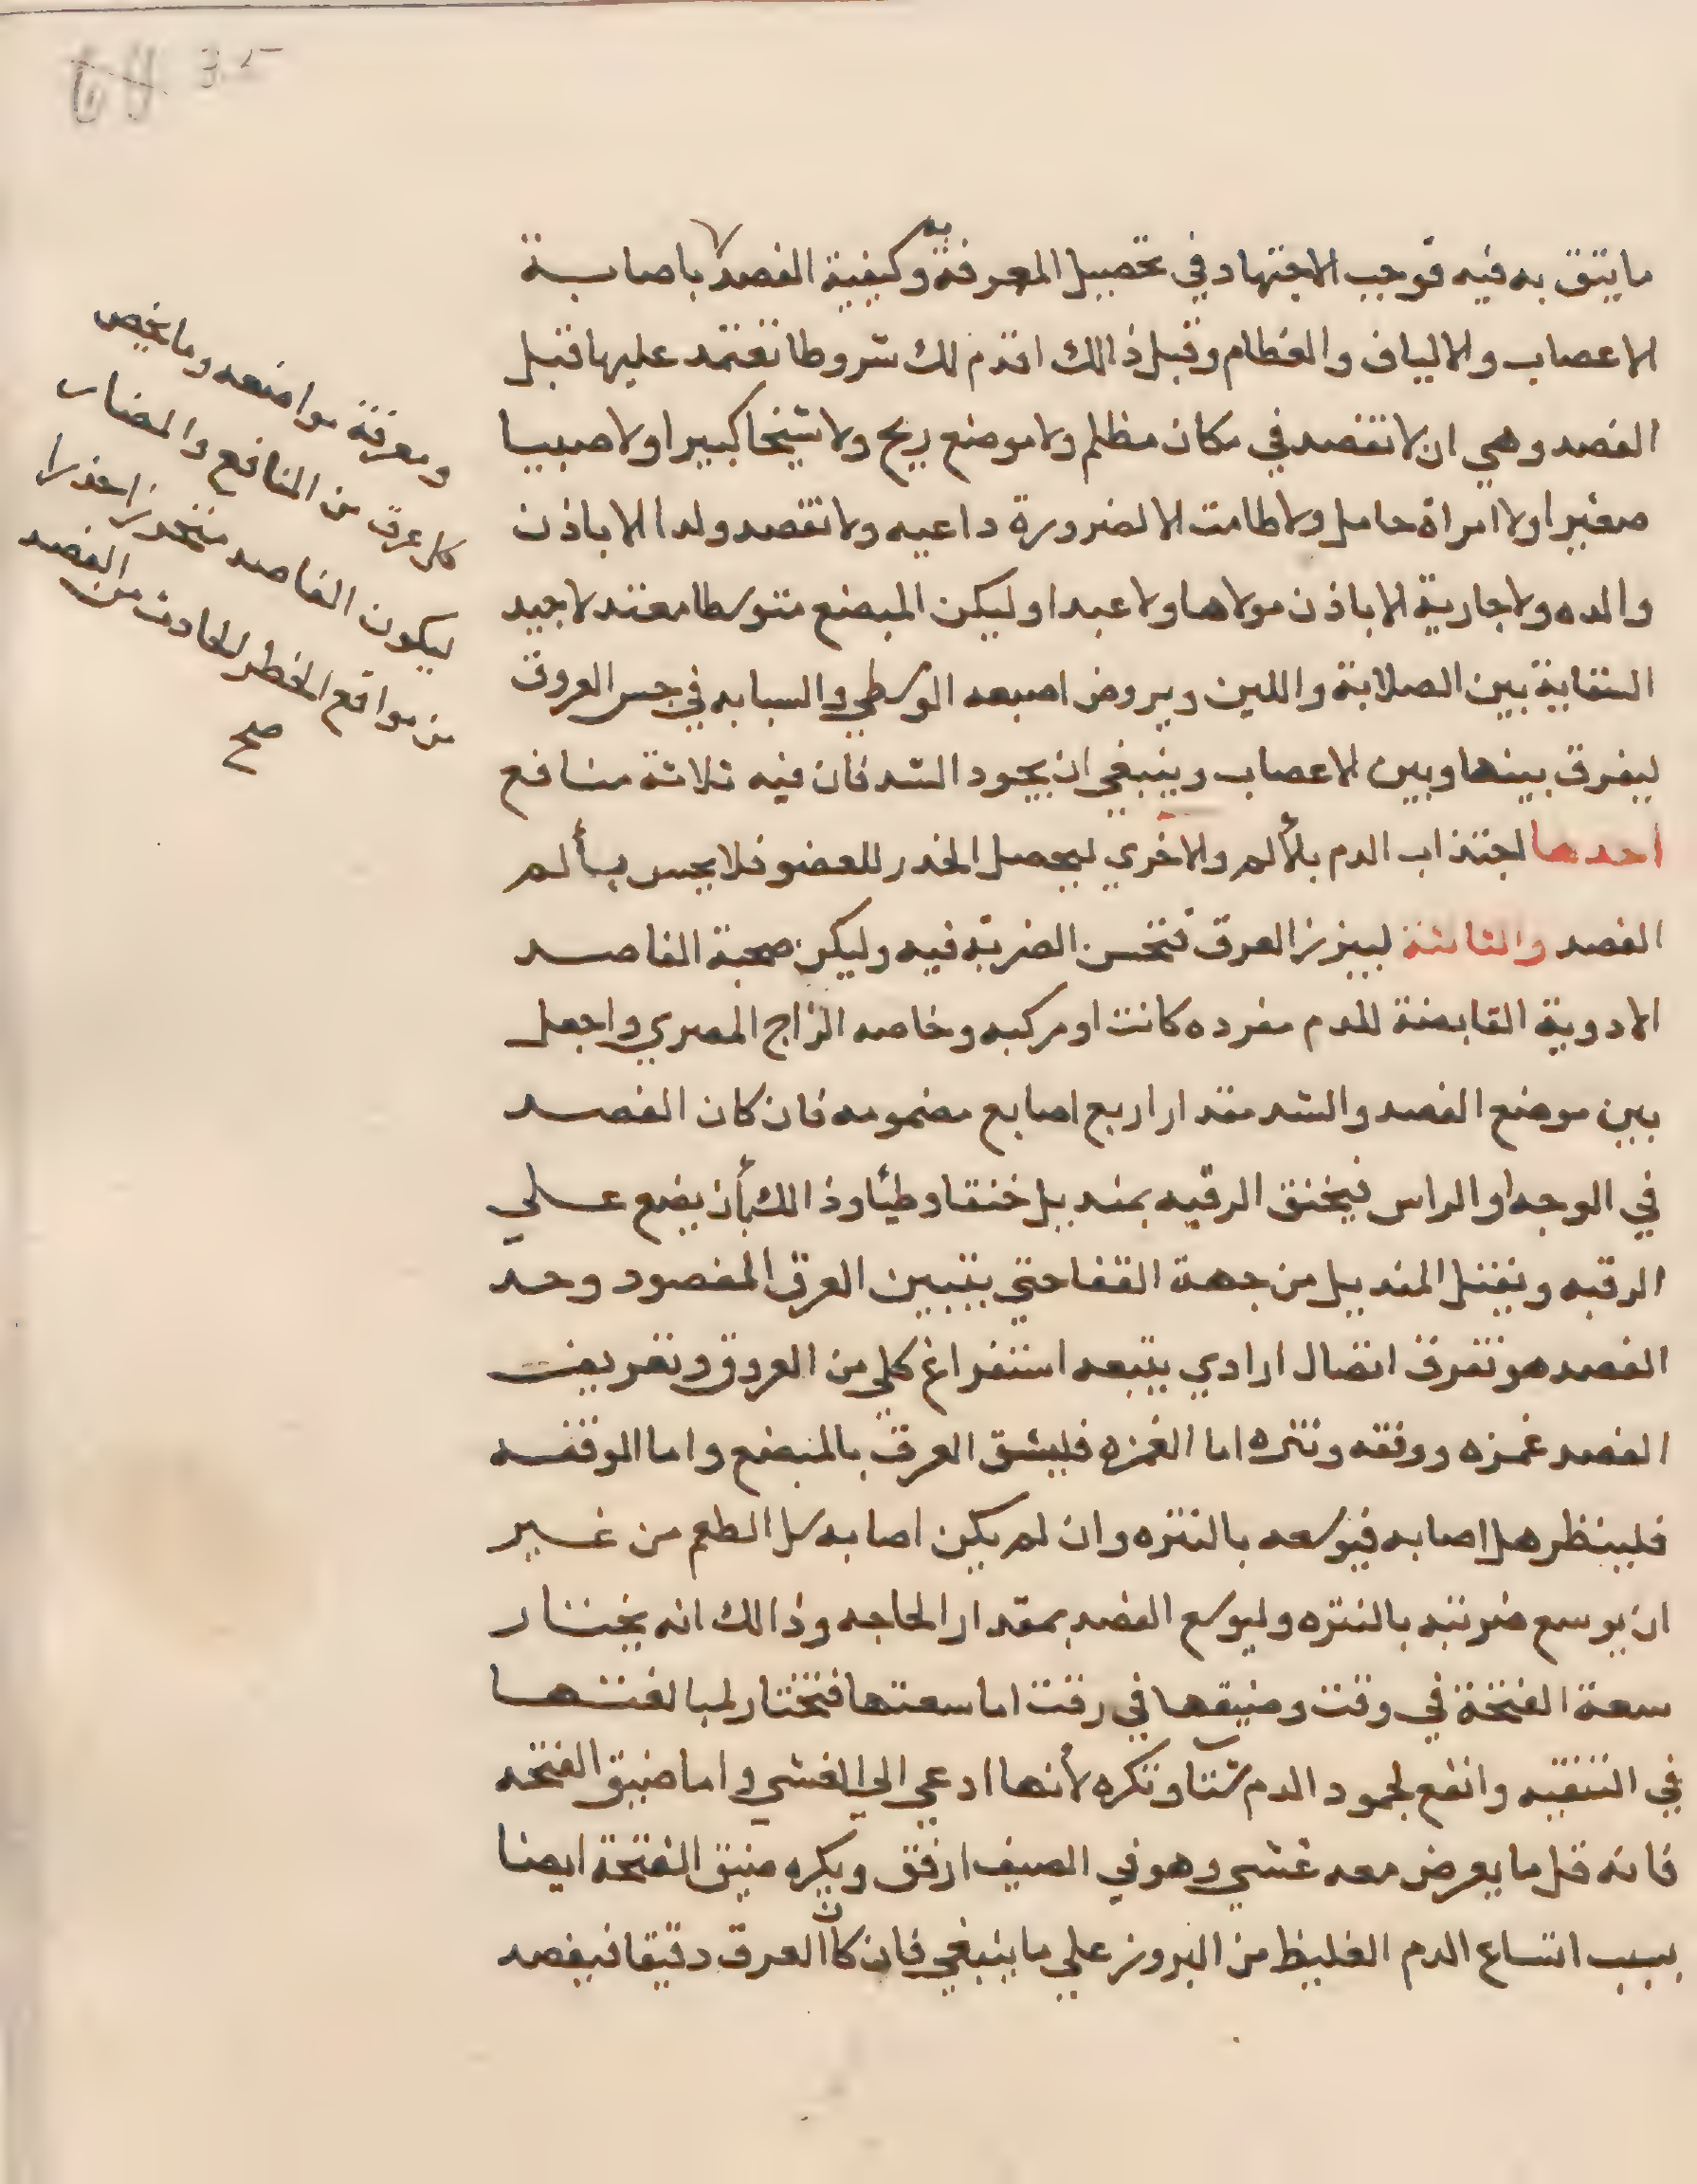 35
ما يثق به فيه فوجب الاجتهاد في تحصيل المعرفة به وكيفية الفصد باصابة
الاعصاب والالياف والعظام وقبل ذالك اقدم لك شروطا تعتمد عليها قبل
الفصد وهي ان لا تفصد في مكان مظلم ولا موضع ريح ولا شيخا كبيرا ولا صبيا
صغيرا ولا امراة حامل ولا طامث الا لضرورة داعيه ولا تفصد ولدا الا باذن
والده ولا جارية الا باذن مولاها ولا عبدا وليكن المبضع متوسطا معتدلا جيد
السقاية بين الصلابة واللين ويروض اصبعه الوسطي والسبابه في جس العروق
ليفرق بينها وبين الاعصاب وينبغي ان يجود الشد فان فيه ثلاثة منافع
احدها لجتذاب الدم بلألم والاخري ليحصل الخدر للعضو فلا يحس بألم
الفصد والثالثة ليبرز العرق فتحسن الضربة فيه وليكن صحبة الفاصد
الادوية القابضة للدم مفرده كانت او مركبه وخاصه الزاج المصري واجعل
بين موضع الفصد والشد مقدار اربع اصابع مضمومه فان كان الفصد
في الوجه او الراس فيخنق الرقبه بمنديل خنقا وطيئا وذالك بأن يضع علي
الرقبه ويفتل المنديل من جهة القفا حتي يتبين العرق المفصود وحد
الفصد هو تفرق اتصال ارادي يتبعه استفراغ كلي من العروق وتعريف
الفصد غمزه ووقفه ونتره اما الغمزه فليشق العرق بالمبضع واما الوقفه
فلينظر هل اصابه فيوسعه بالنتره وان لم يكن اصابه سل الطعم من غير
ان يوسع ضربته بالنتره وليوسع الفصد بمقدار الحاجه وذالك انه يختار
سعة الفتحة في وقت وضيقها في وقت اما سعتها فتختار لمبالغتها
في التنقيه وانفع لجمود الدم شتآ وتكره لأنها ادعي الي الغشي واما ضيق الفتحه
فانه قل ما يعرض معه غشي وهو في الصيف ارفق ويكره ضيق الفتحة ايضا
بسبب اتساع الدم الغليظ من البروز علي ما ينبغي فان كان العرق دقيقا فيفصد
ومعرفة مواضعه وما يخص
كل عرق من المنافع والمضار
ليكون الفاصد متحرزا حذرا
من مواقع الخطر الحادث من الفصد
صح